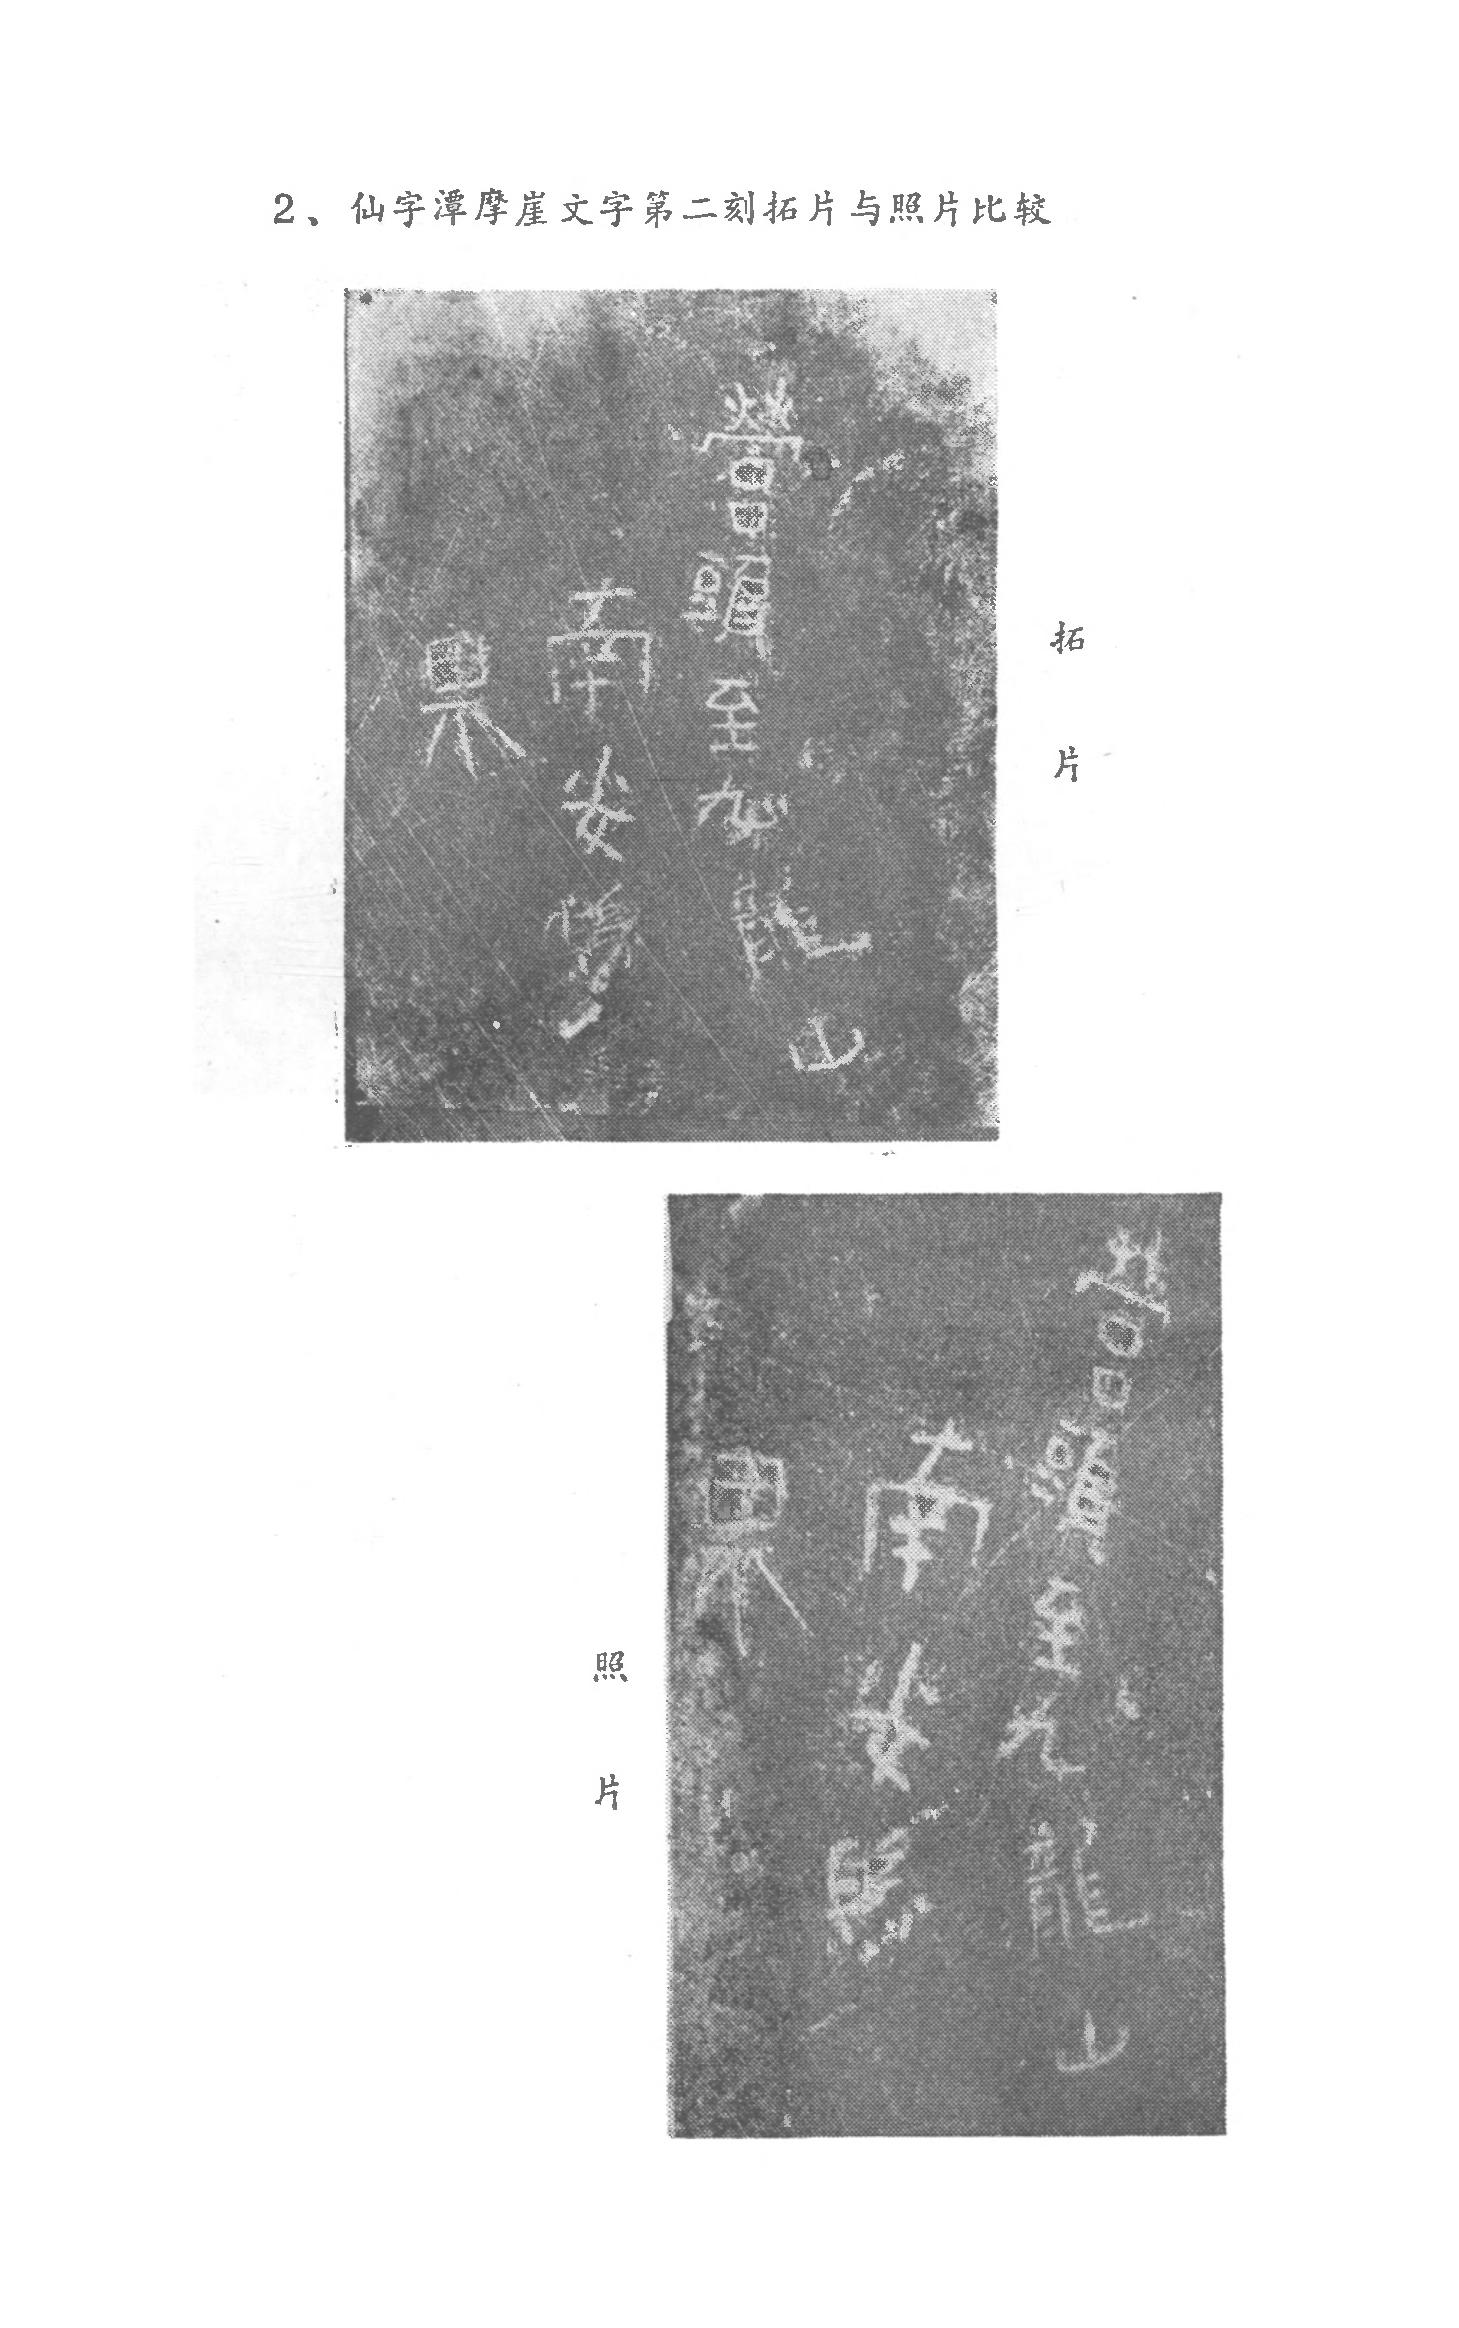 2、仙字潭摩崖文字第二刻拓片与照片比较
營頭至九龍山
南安縣
界
拓片
營頭至九龍山
南安縣
界
照片